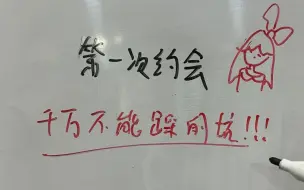 第一次约会
千万不能踩的坑!!!